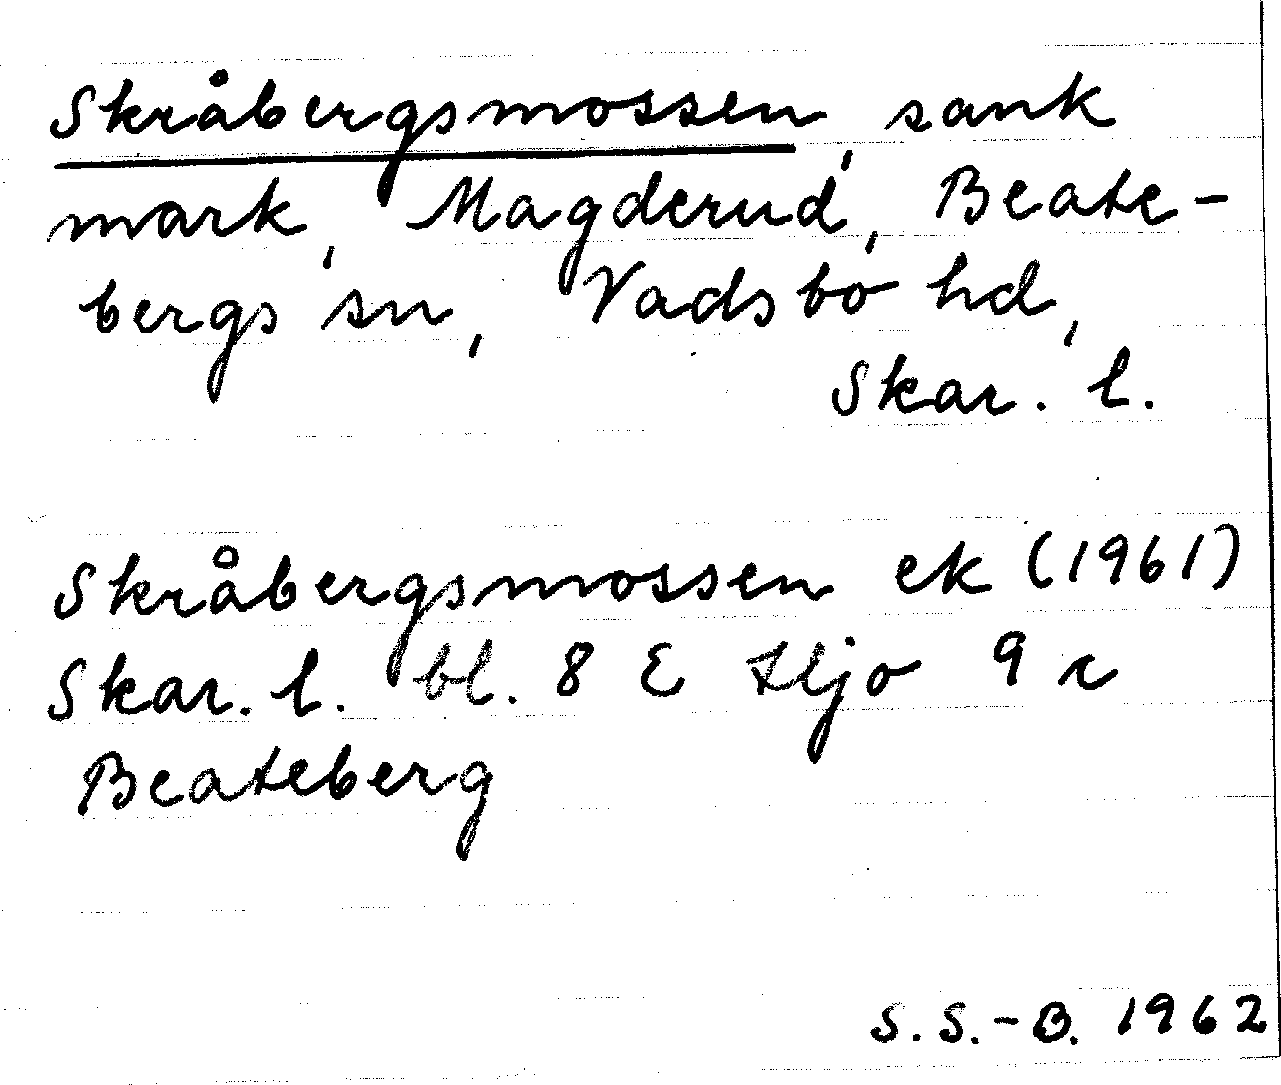 Skråbergsmossen, sank
mark, Magderud, Beate-
bergs sn, Vadsbo hd,
Skar. l.
Skråbergsmossen ek (1961)
Skar. l. bl. 8 E Hjo 9 c
Beateberg
S.S.-B. 1962